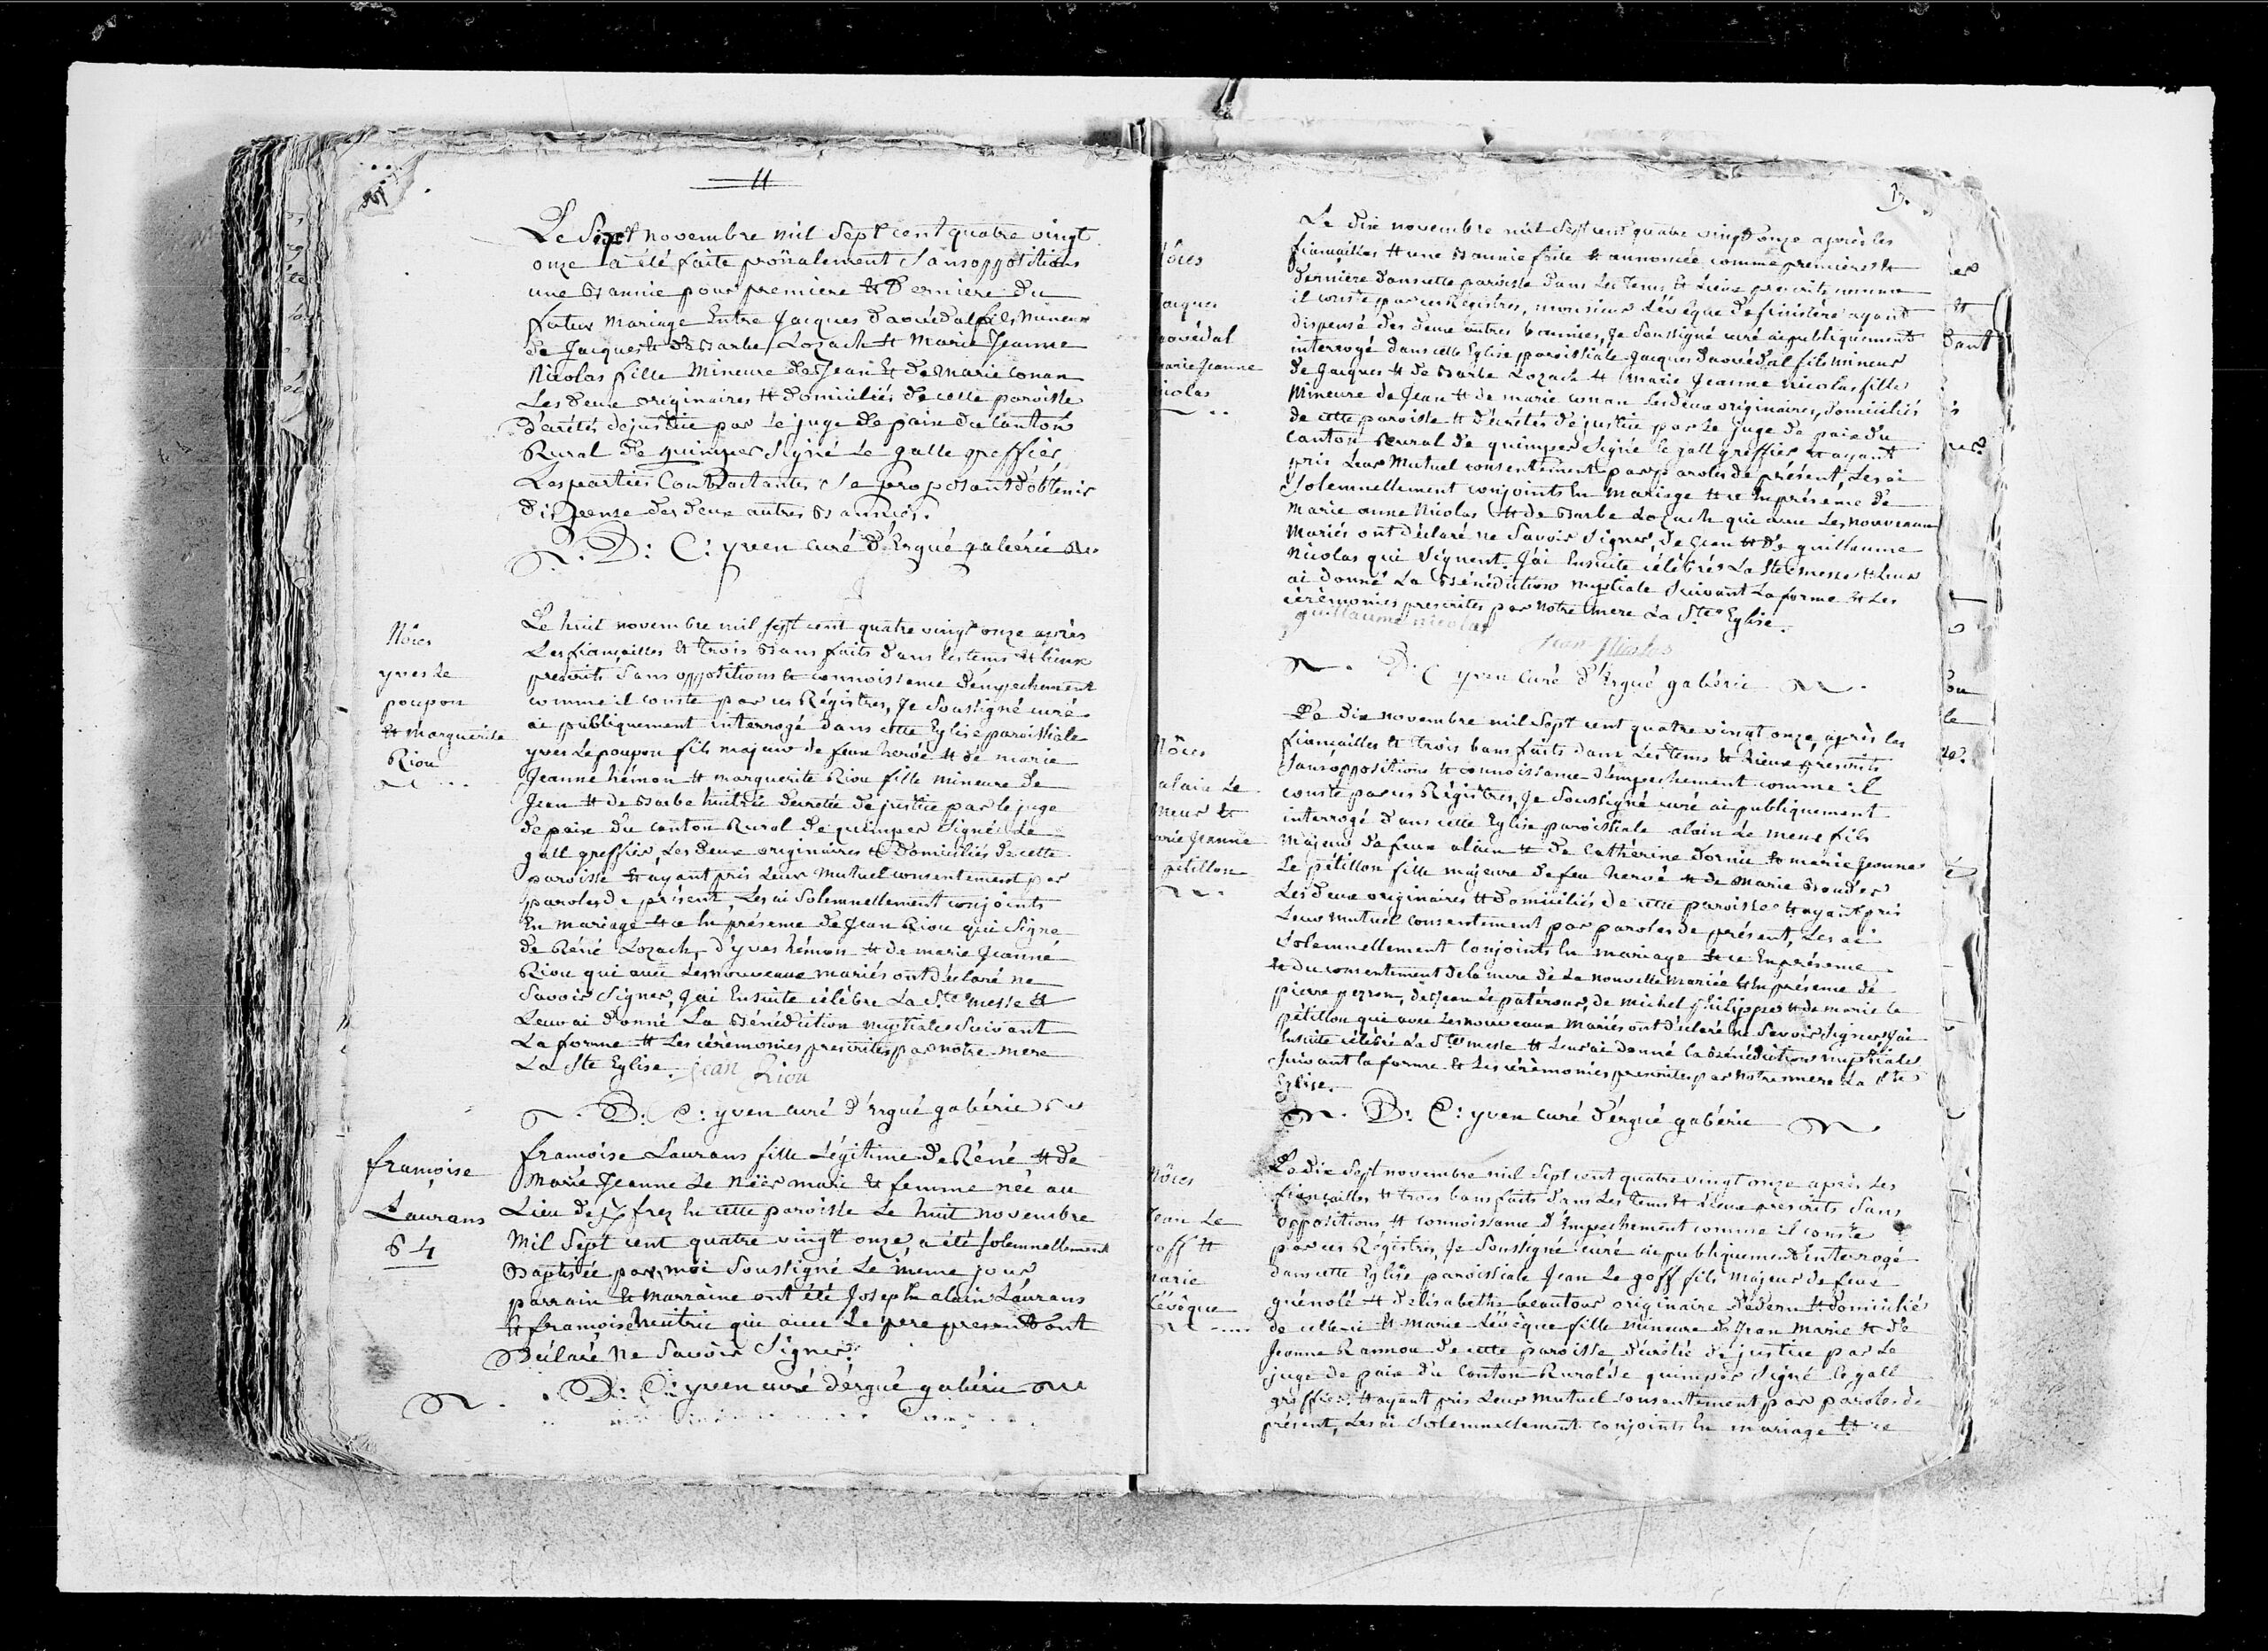 11
Le Sept novembre mil Sept cent quatre vingt
onze a été faite prônalement Sans oppositions
une Bannie pour premiere et Derniere du
futur Mariage Entre Jacques daouédal fils Mineur
de Jacques et de Barbe Lozach et Marie Jeanne
Nicolas fille Mineure de Jean et de Marie Conan
Les deux originaires et domiciliés de cette paroisse
décrétés de justice par le juge de paix du Canton
Rural de quimper Signé Le galle greffier
Les parties Contractantes Se proposant d'obtenir
dispense des deux autres Bannies.
D: C: yven curé d'Ergué gabéric
Nôces
yves Le
poupon
et Marguerite
Riou
Le huit novembre mil Sept cent quatre vingt onze après
Les fiançailles et trois Bans faits dans les tems et lieux
prescrits Sans oppositions et connoissance d'empechement
comme il conste par ces Régistres, Je Soussigné curé
ai publiquement interrogé dans cette Eglise paroissiale
yves Le poupon fils majeur de feux hervé et de marie
Jeanne hémon et marguerite Riou fille mineure de
Jean et de Barbe huitric décretée de justice par le juge
de paix du canton Rural de quimper Signé Le
gall greffier, Les deux originaires et Domiciliés de cette
paroisse et ayant pris Leur Mutuel consentement par
paroles de présent, Les ai Solemnellement conjoints
En mariage et ce En présence de Jean Riou qui Signe
de Réné Lozach, d'yves hémon et de marie Jeanne
Riou qui avec Les nouveaux mariés ont déclaré ne
Savoir Signer, J'ai Ensuite célébré La Ste messe et
Leur ai donné La Bénédiction nuptiale Suivant
La forme et Les cérémonies prescrites par notre mere
La Ste Eglise. Jean Riou
D: C: yven curé d'Ergué gabéric
françoise
Laurans
64
françoise Laurans fille Légitime de Réné et de
Marie Jeanne Le Nëir mari et femme née au
Lieu de frez En cette paroisse Le huit novembre
Mil Sept cent quatre vingt onze a été Solemnellement
Baptisée par moi Soussigné Le même jour
parrain et Marraine ont été Joseph alain Laurans
et françoise huitric qui avec Le pere present ont
Déclaré ne Savoir Signer.
D: C: yven curé d'ergué gabéric
13.
Nôces
Jacques
Daouédal
marie Jeanne
nicolas
Le dix novembre mil Sept cent quatre vingt onze après les
fiançailles et une Bannie faite et annoncée comme premiere et
derniere dans cette paroisse dans Les Tems et Lieux prescrits comme
il conste par ces Régistres, monsieur L'évêque du finistère ayant
dispensé des deux autres bannies, Je Soussigné curé ai publiquement
interrogé dans cette Eglise paroissiale Jacques daouédal fils mineur
de Jacques et de Barbe Lozach et marie Jeanne nicolas fille
Mineure de Jean et de marie conan Les deux originaires, domiciliés
de cette paroisse et décrétés de justice par Le juge de paix du
Canton Rural de quimper Signé le gall greffier et ayant
pris Leur Mutuel consentement par paroles de présent, Les ai
Solemnellement conjoints En Mariage et ce En présence de
Marie anne Nicolas et de Barbe Lozach qui avec Les nouveaux
Mariés ont déclaré ne Savoir Signer, de Jean et de guillaume
Nicolas qui Signent. J'ai Ensuite célébré La Ste messe et Leur
ai donné La Bénédiction nuptiale Suivant La forme et Les
cérémonies prescrites par Notre mere La Ste Eglise.
guillaume nicolas
Jean Nicolas
D: C yven Curé d'Ergué gabéric
Nôces
alain Le
Meur et
marie Jeanne
pétillon
Le Dix novembre mil Sept cent quatre vingt onze, après les
fiançailles et trois bans faits dans Les tems et Lieux prescrits
Sans oppositions et connoissance d'empechement comme il
conste par ces Régistres, Je Soussigné curé ai publiquement
interrogé dans cette Eglise paroissiale alain Le meur fils
Majeur de feux alain et de Cathérine dornic et marie Jeanne
Le pétillon fille majeure de feu hervé et de Marie
Les deux originaires et domiciliés de cette paroisse et ayant pris
Leur mutuel consentement par paroles de présent, Les ai
Solemnellement conjoints En mariage et ce En présence
et du consentement de la mere de La nouvelle Mariée et En présence de
pierre perron, de Jean Le patérour, de Michel philippe et de marie le
pétillon qui avec Les nouveaux Mariés ont déclaré ne Savoir Signer, J'ai
Ensuite célébré La Ste messe et Leur ai donné la Bénédiction nuptiale
Suivant la forme et Les cérémonies prescrites par Notre mere La Ste
Eglise.
D: C: yven curé d'ergué gabéric
Nôces
Jean Le
goff et
marie
Lévêque
Le dix Sept novembre mil Sept cent quatre vingt onze après Les
fiançailles et trois bans faits dans Les tems et Lieux prescrits Sans
oppositions et connoissance d'Empechement comme il conste
par ces Régistres, Je Soussigné curé ai publiquement interrogé
dans cette Eglise paroissiale Jean Le goff fils Majeur de feux
guénolé et d'elisabethe beautour originaire d'édern et domicilié
de celle-ci et Marie Lévêque fille mineure de Jean Marie et de
Jeanne Rannou de cette paroisse décrétée de justice par Le
juge de paix du Canton Rural de quimper Signé le gall
greffier. et ayant pris Leur Mutuel consentement par paroles de
présent, Les ai Solemnellement conjoints En mariage et ce